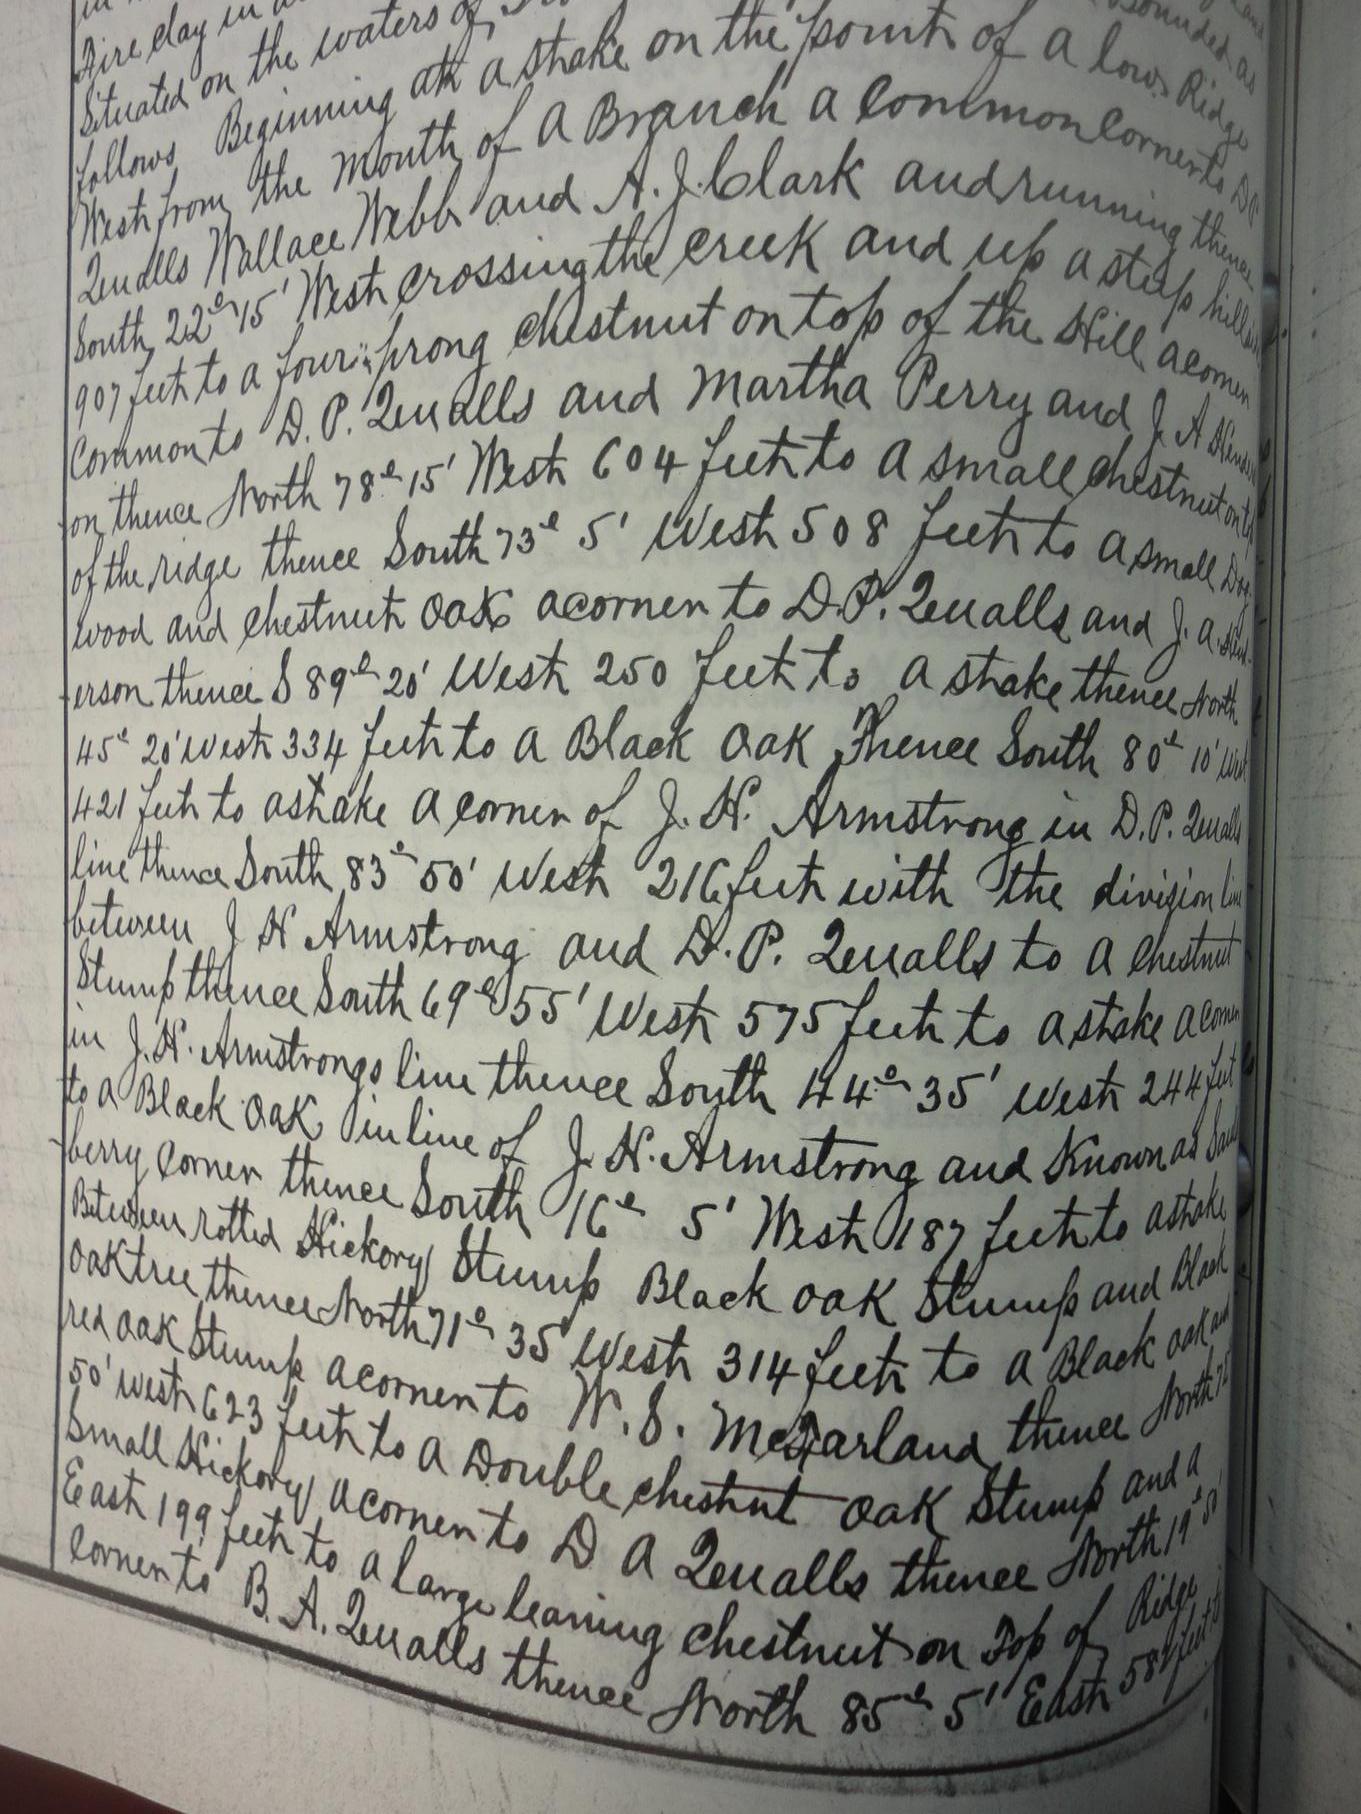 Fire clay in
Situated on the waters of bounded as
follows Beginning at a stake on the point of a low Ridge
West from the mouth of a Branch a common corner to D P
Qualls Wallace Webb and A. J. Clark and running thence
South 22° 15' West crossing the creek and up a steep hill
907 feet to a four prong chestnut on top of the Hill a corner
Common to D. P. Qualls and Martha Perry and J. A Hender
on thence North 78° 15' West 604 feet to a small chestnut on top
of the ridge thence South 73° 5' West 508 feet to a small Dog-
wood and chestnut Oak a corner to D. P. Qualls and J. A. Hend-
erson thence S 89° 20' West 250 feet to a stake thence North
45° 20' West 334 feet to a Black Oak Thence South 80° 10' West
421 feet to a stake a corner of J. H. Armstrong in D. P. Qualls
line thence South 83° 50' West 216 feet with the division line
between J H Armstrong and D. P. Qualls to a chestnut
Stump thence South 69° 55' West 575 feet to a stake a corner
in J. H. Armstrongs line thence South 44° 35' West 244 feet
to a Black Oak in line of J. H. Armstrong and Known as
berry Corner thence South 16° 5' West 187 feet to a stake
Between rotted Hickory Stump Black oak Stump and Black
oak tree thence North 71° 35' West 314 feet to a Black oak and
red oak Stump a corner to W. S. McFarland thence North
50' West 623 feet to a Double chestnut oak Stump and a
Small Hickory a corner to D A Qualls thence North 19° 50'
East 199 feet to a large leaning chestnut on Top of Ridge
Corner to B. A. Qualls thence North 85° 5' East feet to